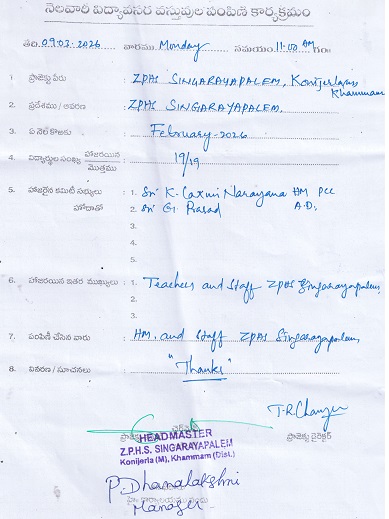 నెలవారీ విద్యావసర వస్తువుల పంపిణీ కార్యక్రమం
తది. 09.03.2026 వారము Monday సమయం 11.00 AM గం॥
1. ప్రాజెక్టు పేరు : ZPHS SINGARAYAPALEM, Konijerla(M)
Khammam
2. ప్రదేశము / ఆవరణ : ZPHS SINGARAYAPALEM.
3. ఏ నెల కొఱకు : February-2026
4. విద్యార్థుల సంఖ్య హాజరయిన / మొత్తము : 19/19
5. హాజరైన కమిటీ సభ్యులు : 1. Sri K. Laxmi Narayana HM PCC
హోదాతో 2. Sri G. Prasad A.D.
3.
4.
5.
6. హాజరయిన ఇతర ముఖ్యులు : 1. Teachers and Staff ZPHS Singarayapalem,
2.
3.
7. పంపిణీ చేసిన వారు : HM. and staff ZPHS Singarayapalem,
8. వివరణ / సూచనలు : "Thanks"
ప్రాజెక్టు డైరెక్టర్
HEADMASTER
Z.P.H.S. SINGARAYAPALEM
Konijerla (M), Khammam (Dist.)
P. Dhanalakshmi
Manager